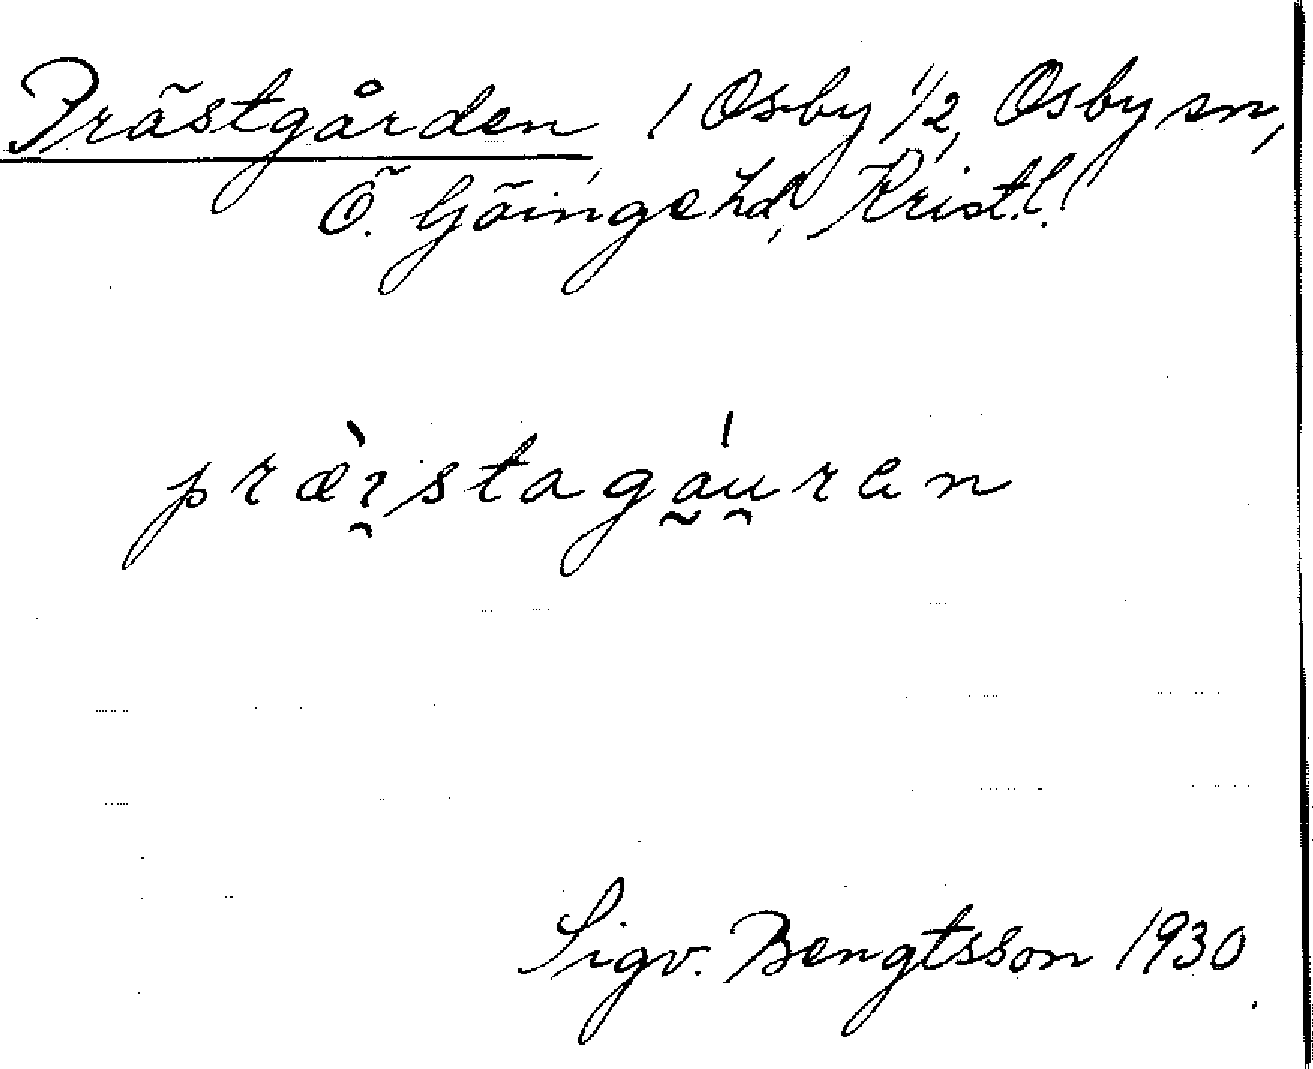 Prästgården 1 Osby 1/2, Osby sn,
Ö. Göinge hd, Krist.l.
præ̀ı̯stagá̰u̯ran
Sigv. Bengtsson 1930.